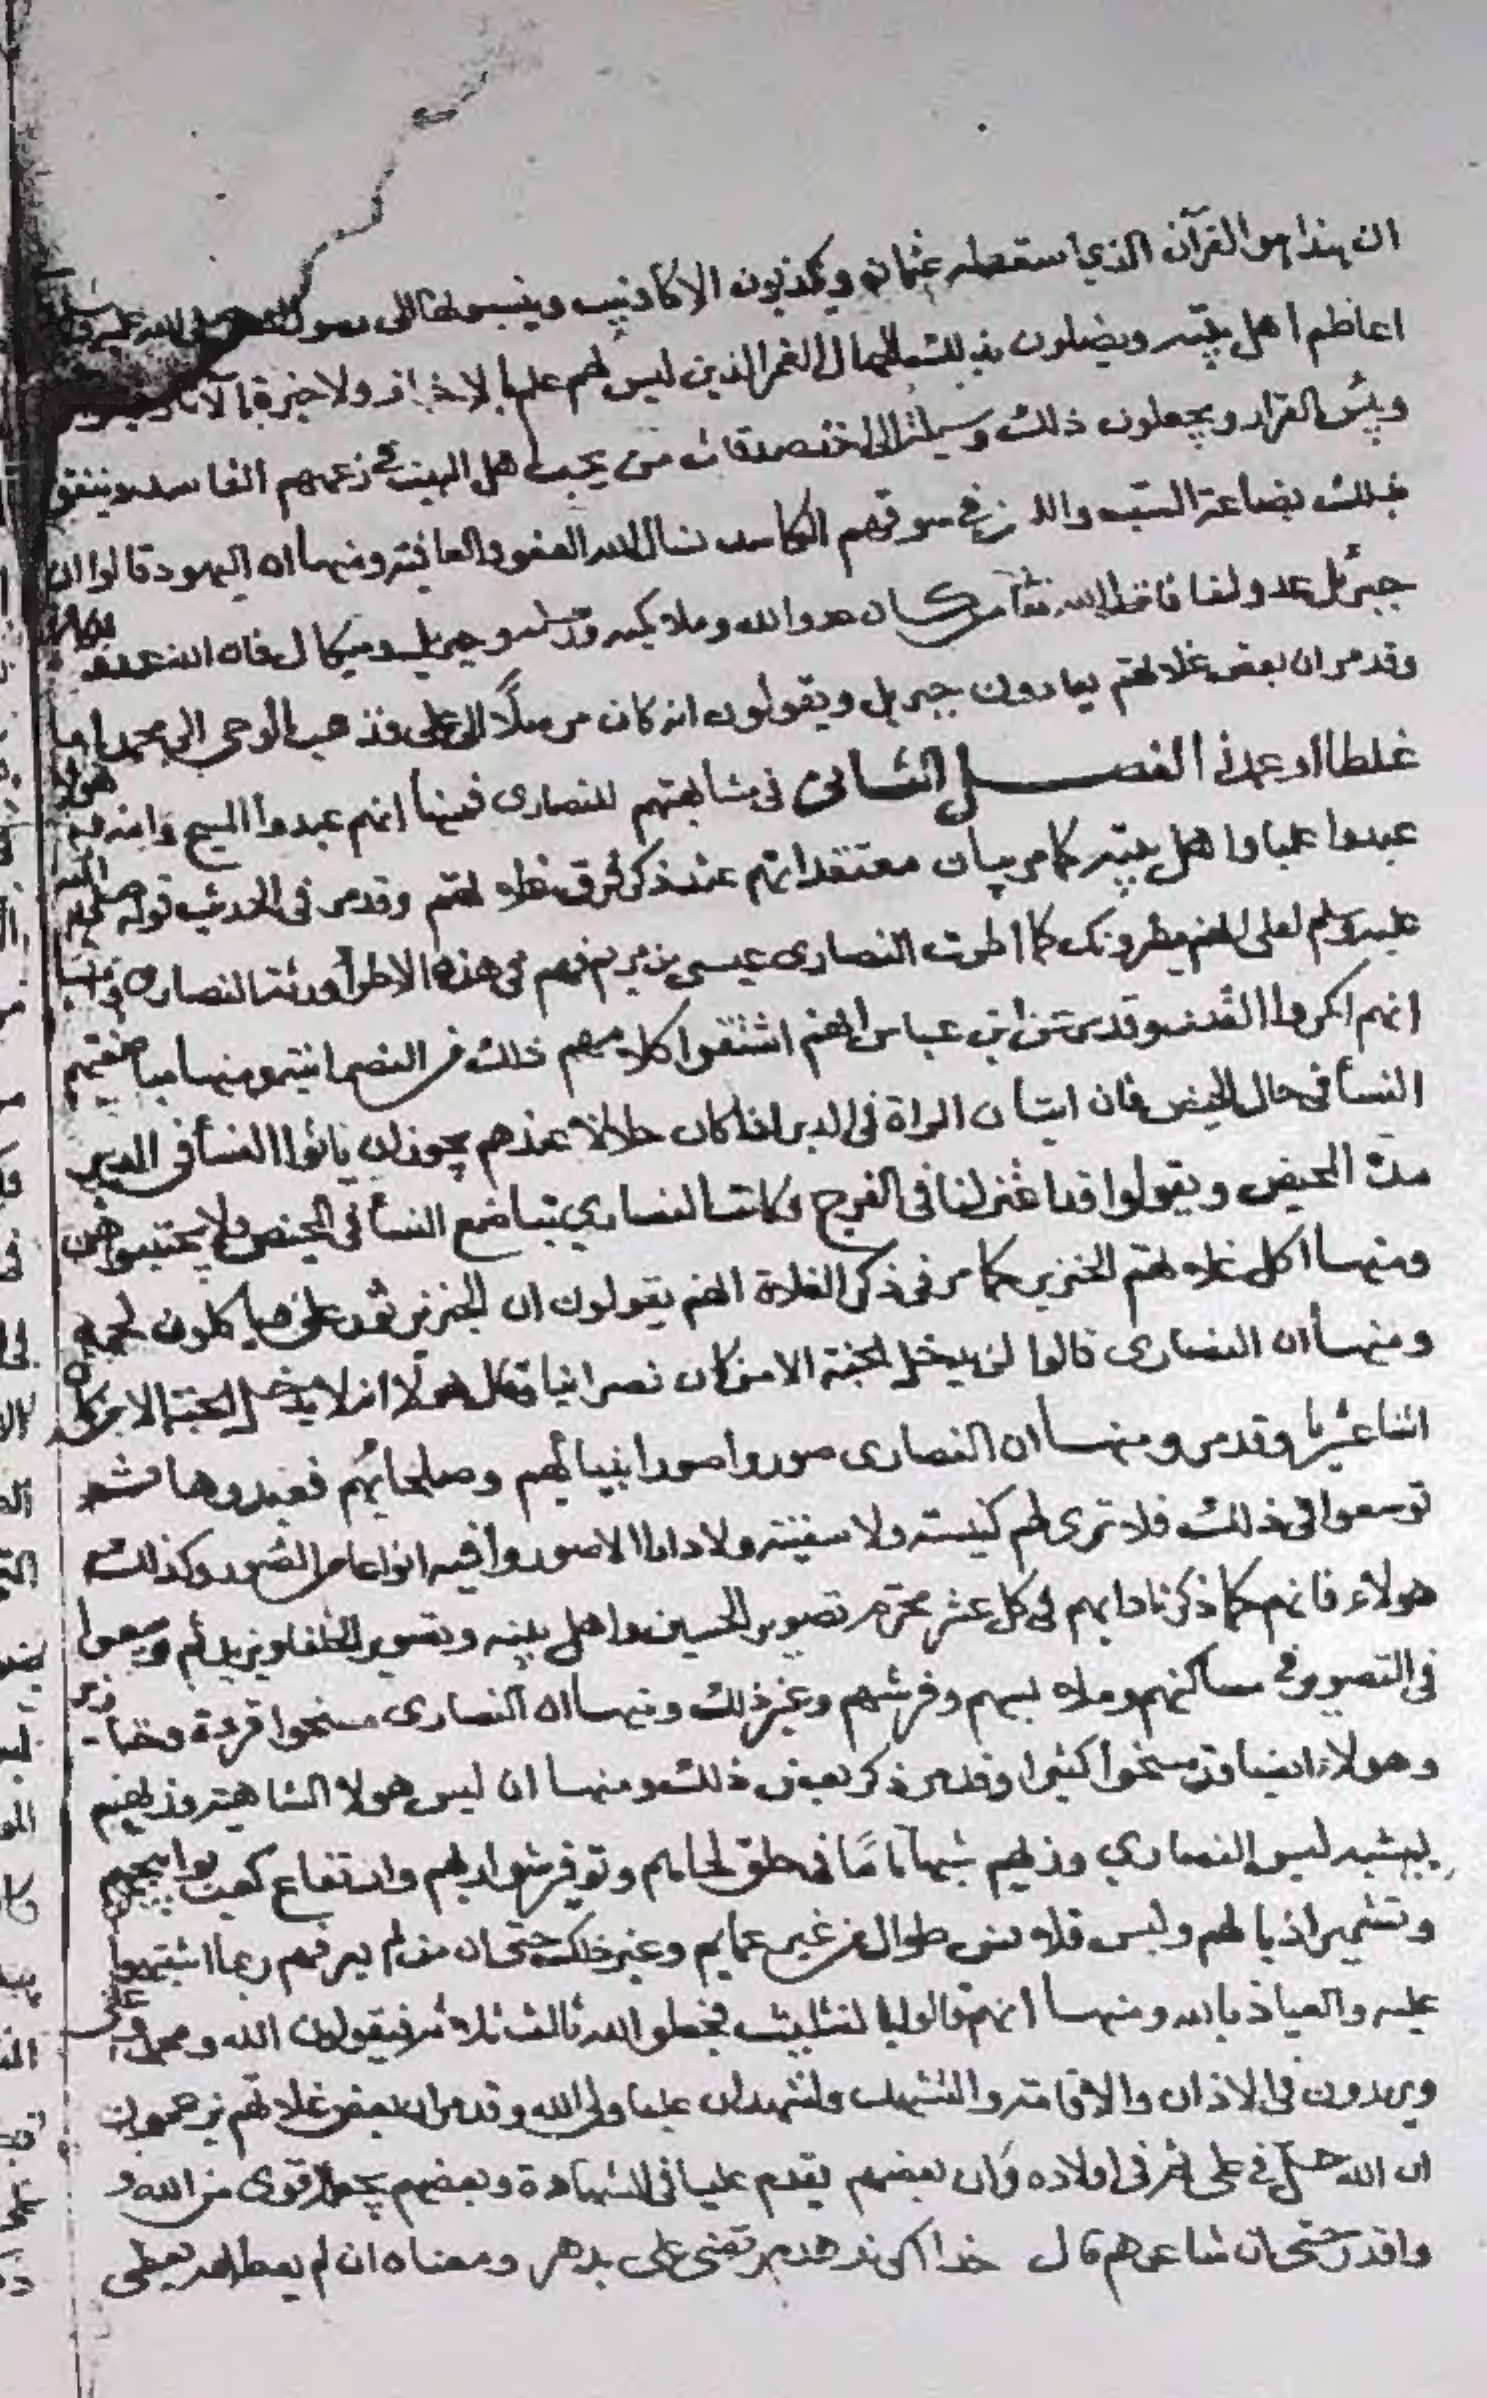 ان هذا هو القرآن الذي اسقطه عثمان ويكذبون الاكاذيب وينسبونها الى رسول الله صلى الله عليه وسلم
اعاظم اهل بيته ويضلون بذلك الجهال الغمر الذين ليس لهم علم بالاخبار ولا خبرة بالآثار
وبئس القرار ويجعلون ذلك وسيلة الى اخذ صدقات من يحب اهل البيت في زعمهم الفاسد وينفق
بذلك بضاعة السب في سوقهم الكاسد نسال الله العفو والعافية ومنها ان اليهود قالوا ان
جبرئيل عدو لنا فانزل الله من كان عدوا لله وملايكته ورسله وجبريل وميكال فان الله عدو
وقد مر ان بعض غلاتهم يعادون جبريل ويقولون انه كان مرسلا الى علي فذهب بالوحي الى محمد اما
غلطا او عمدا الفصل الثاني في مشابهتهم للنصارى فمنها انهم عبدوا المسيح وامه هولا
عبدوا عليا واهل بيته كما مر بيان معتقداتهم عند ذكر فرق غلاتهم وقد مر في الحديث قوله صلى الله
عليه وسلم لعلي انهم يطرونك كما اطرت النصارى عيسى بن مريم فهم في هذه الاطرا ورثة النصارى ومنها
انهم انكروا القدر وقد مر عن ابن عباس انهم اشتقوا كلامهم ذلك من النصرانية ومنها مباضعتهم
النسا في حال الحيض فان اتيان المراة في الدبر لما كان حلالا عندهم يجوز ان ياتوا النسا في الدبر
مدة الحيض ويقولوا قد اعتزلنا في الفرج وكانت النصاري تباضع النسا في الحيض ولا يجتنبوا هن
ومنها اكل غلاتهم الخنزير كما مر في ذكر الغلاة انهم يقولون ان الخنزير فياكلون لحمه
ومنها ان النصارى قالوا لن يدخل الجنة الا من كان نصرانيا وقال هولا انه لا يدخل الجنة الا من كان
اثنا عشريا وقد مر ومنها ان النصارى صوروا صور انبيائهم وصلحائهم فعبدوها ثم
توسعوا في ذلك فلا ترى لهم كنيسة ولا سفينة ولا دارا الا صوروا فيه انواعا من الصور وكذلك
هولاء فانهم كما ذكرنا دابهم في كل عشر محرم تصوير الحسين واهل بيته وتصوير الخلفا ويزيد ثم توسعوا
في التصوير في مساكنهم وملابسهم وفرشهم وغير ذلك ومنها ان النصارى مسخوا قردة وخنازير
وهولاء ايضا قد مسخوا كثيرا وقد مر ذكر بعض ذلك ومنها ان لبس هولا الشاهية وزيهم
يشبه لبس النصاري وزيهم شبها تاما في حلق لحاهم وتوفير شواربهم وارتفاع كعب بوابيجهم
وتشمير اذيالهم ولبس قلانس طوال من غير عمايم وغير ذلك حتى ان من لم يعرفهم ربما اشتبهوا
عليه والعياذ بالله ومنها انهم قالوا بالتثليث فجعلوا الله ثالث ثلاثة فيقولون الله ومحمد وعلى
ويزيدون في الاذان والاقامة والتشهد واشهد ان عليا ولي الله وقد مر ان بعض غلاتهم يزعمون
ان الله حل في علي ثم في اولاده وان بعضهم يقدم عليا في الشهادة وبعضهم يجعله اقوى من الله و
واقدر حتى ان شاعرهم قال خدا اكر ندهد مرتضى على بدهد ومعناه ان لم يعط الله يعطي